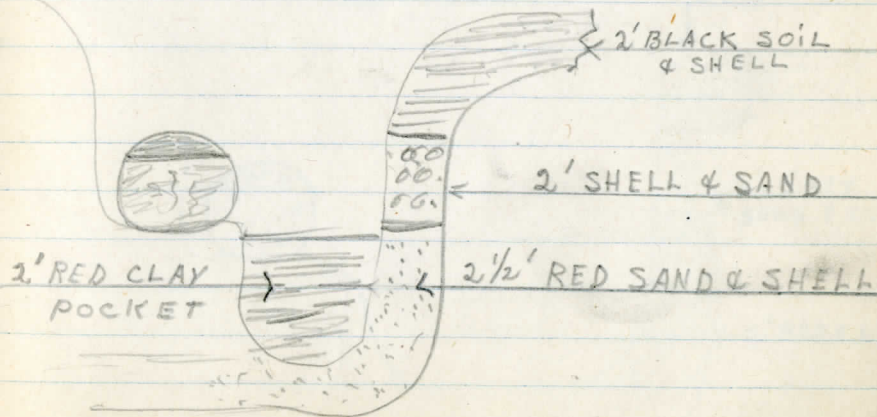 2' BLACK SOIL
& SHELL
2' SHELL & SAND
2' RED CLAY
POCKET
2 1/2' RED SAND & SHELL